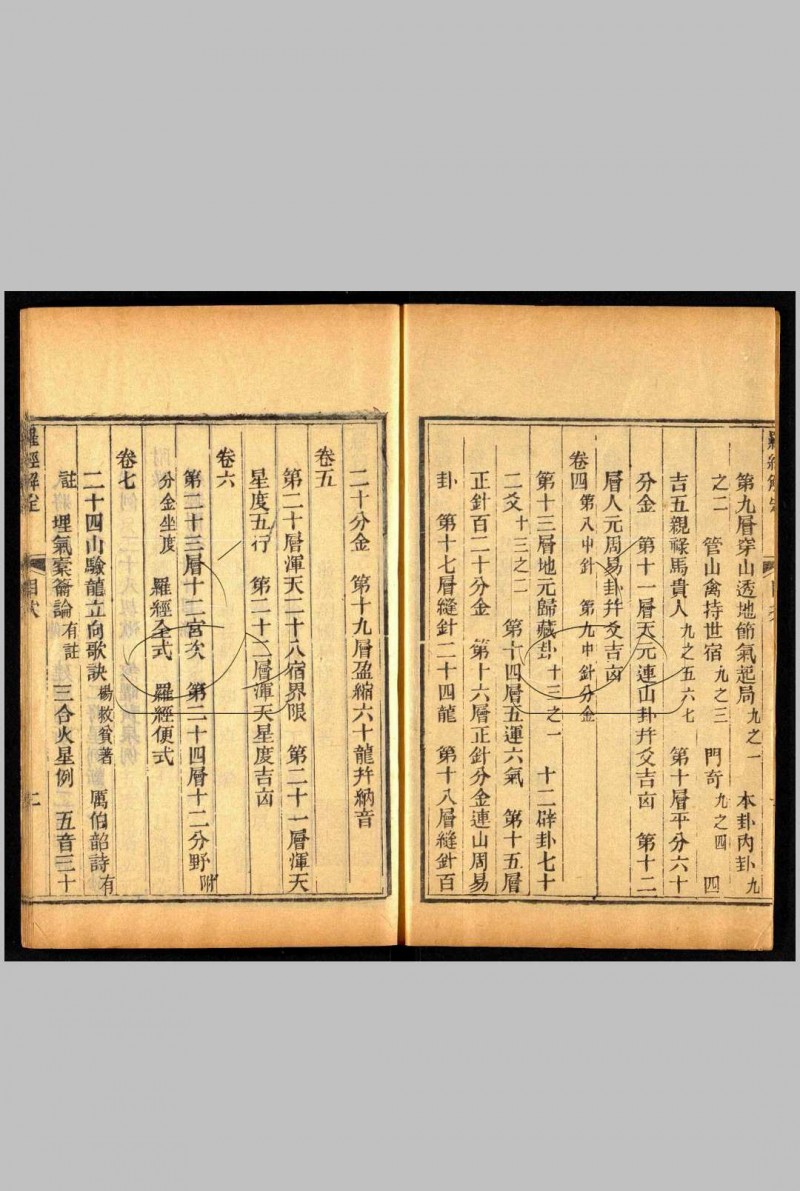 第九層穿山透地節氣起局九之一　本卦內卦九
之二　管山禽持世宿九之三　門奇九之四　四
吉五親祿馬貴人九之五六七　第十層平分六十
分金　第十一層天元連山卦幷爻吉凶　第十二
層人元周易卦幷爻吉凶
卷四　第八中針　第九中針分金
第十三層地元歸藏卦十三之一　十二辟卦七十
二爻十三之二　第十四層五運六氣　第十五層
正針百二十分金　第十六層正針分金連山周易
卦　第十七層縫針二十四龍　第十八層縫針百
二十分金　第十九層盈縮六十龍幷納音
卷五
第二十層渾天二十八宿界限　第二十一層渾天
星度五行　第二十二層渾天星度吉凶
卷六
第二十三層十二宮次　第二十四層十二分野附
分金坐度　羅經全式　羅經便式
卷七
二十四山驗龍立向歌訣楊救貧著　厲伯韶詩有
註　埋氣索籥論有註　三合火星例　五音三十
羅經解定　目次　二